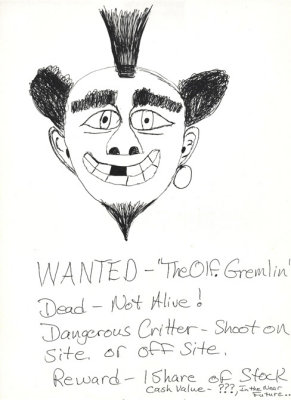 WANTED - "The Olf. Gremlin"
Dead - Not Alive!
Dangerous Critter - Shoot on
Site. or off Site.
Reward - 1 Share of Stock
Cash Value - ???, In the Near
Future..